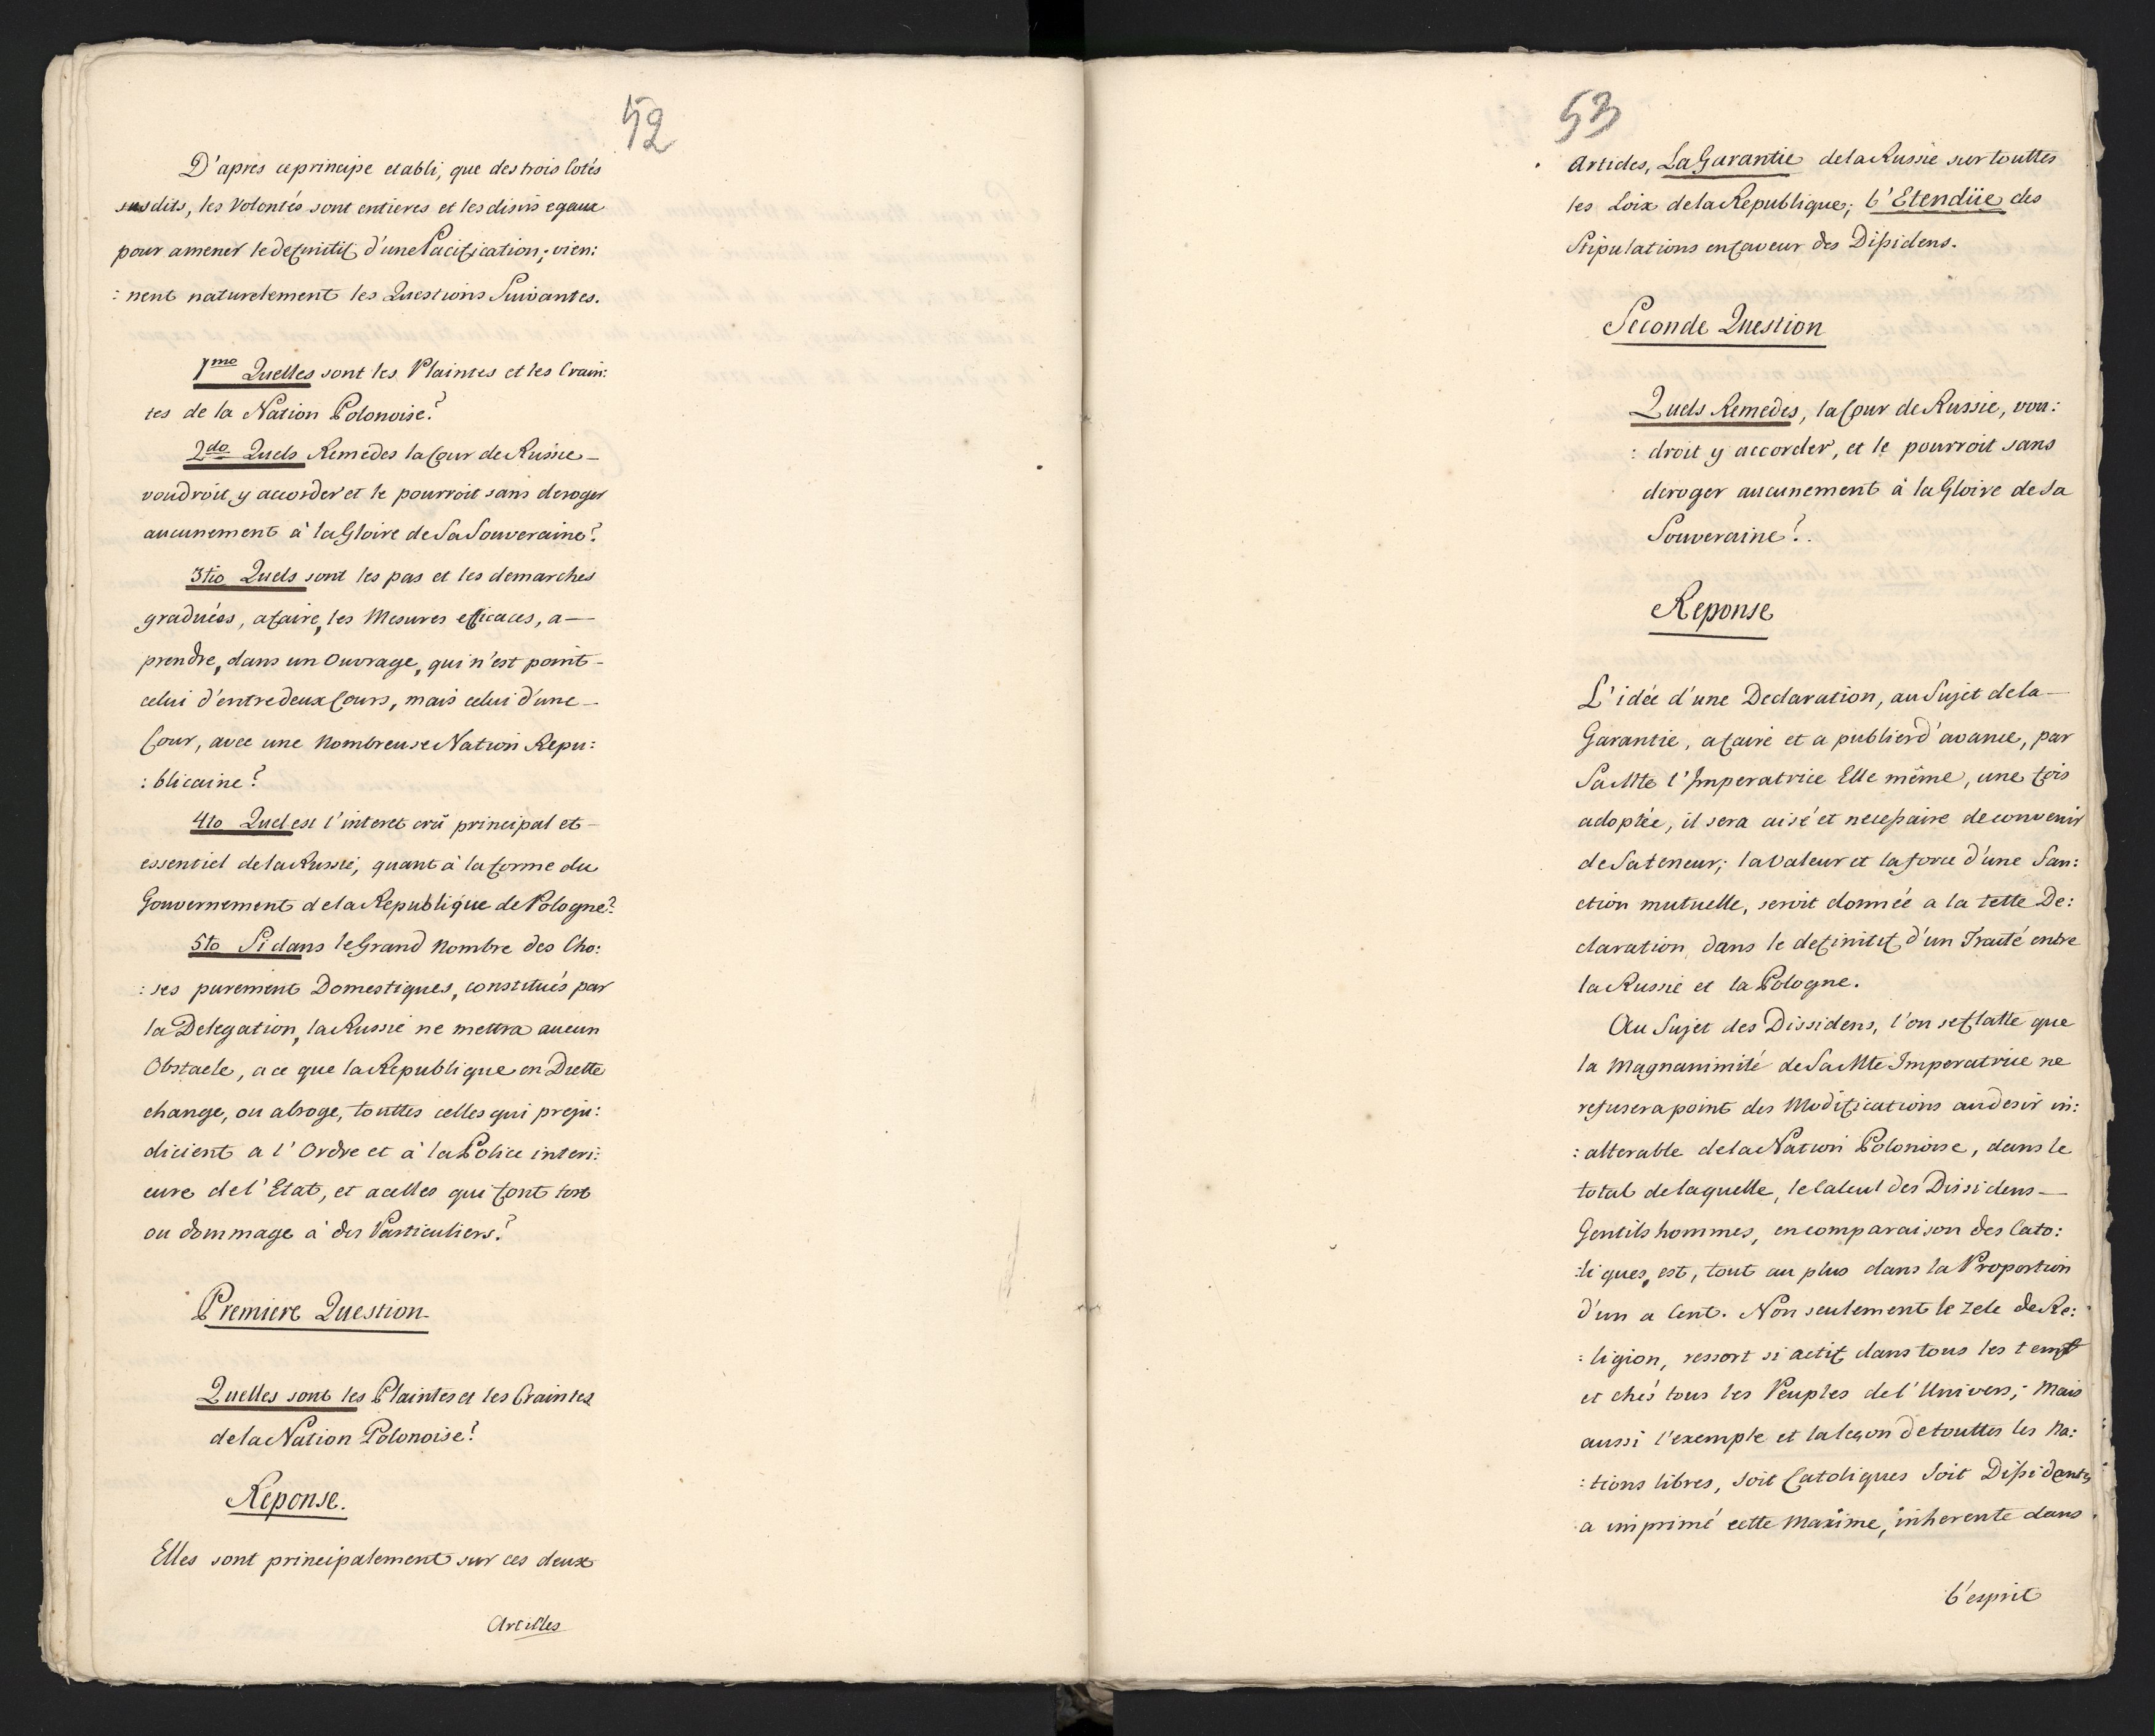 52
D'apres ce principe etabli, que des trois Cotés
susdits, les Volontés sont entieres et les disirs egaux
pour amener le definitif d'une Pacification; vien:
: nent naturelement les Questions Suivantes.
1mo Quelles sont les Plaintes et les Crain:
tes de la Nation Polonoise?
2do Quels Remedes la Cour de Russie
voudroit y accorder et le pourroit sans deroger
aucunement à la Gloire de Sa Souveraine?
3tio Quels sont les pas et les demarches
graduées, a faire, les Mesures efficaces, a
prendre, dans un Ouvrage, qui n'est point
celui d'entre deux Cours, mais celui d'une
Cour, avec une Nombreuse Nation Repu:
: blicaine?
4to Quel est l'interet crû principal et
essentiel de la Russie, quant à la forme du
Gouvernement de la Republique de Pologne?
5to Si dans le Grand Nombre des Cho:
: ses purement Domestiques, constitués par
la Delegation, la Russie ne mettra aucun
Obstacle, a ce que la Republique en Diette
change, ou abroge, touttes celles qui preju:
dicient a l'Ordre et à la Police interi:
eure de l'Etat, et acelles qui font tort
ou dommage à des Particuliers?
Premiere Question
Quelles sont les Plaintes et les Craintes
de la Nation Polonoise?
Reponse.
Elles sont principalement sur ces deux
Articles
53
Articles, La Garantie de la Russie sur touttes
les Loix de la Republique; L'Etendüe des
Stipulations en faveur des Dissidens.
Seconde Question
Quels Remedes, la Cour de Russie, vou:
: droit y accorder, et le pourroit sans
deroger aucunement à la Gloire de Sa
Souveraine?
Reponse
L'idée d'une Declaration, au Sujet de la
Garantie, a faire et a publier d'avance, par
Sa Mte l'Imperatrice Elle même, une fois
adoptée, il sera aisé et necessaire de convenir
de Sa teneur; la Valeur et la force d'une San:
ction mutuelle, seroit donnée a la tette De:
claration, dans le definitif d'un Traité entre
la Russie et la Pologne.
Au Sujet des Dissidens, l'on se flatte que
la Magnanimité de Sa Mte Imperatrice ne
refusera point des Modifications au desir in:
: alterable de la Nation Polonoise, dans le
total de laquelle, le Calcul des Dissidens
Gentils hommes, en comparaison des Cato:
: liques, est, tout au plus dans la Proportion
d'un a Cent. Non seulement le zele de Re:
: ligion, ressort si actif dans tous les temps
et chés tous les Peuples de l'Univers; Mais
aussi l'exemple et la leçon de touttes les Na:
: tions libres, soit Catoliques soit Dissidents
a imprimé cette Maxime, inherente dans
l'esprit